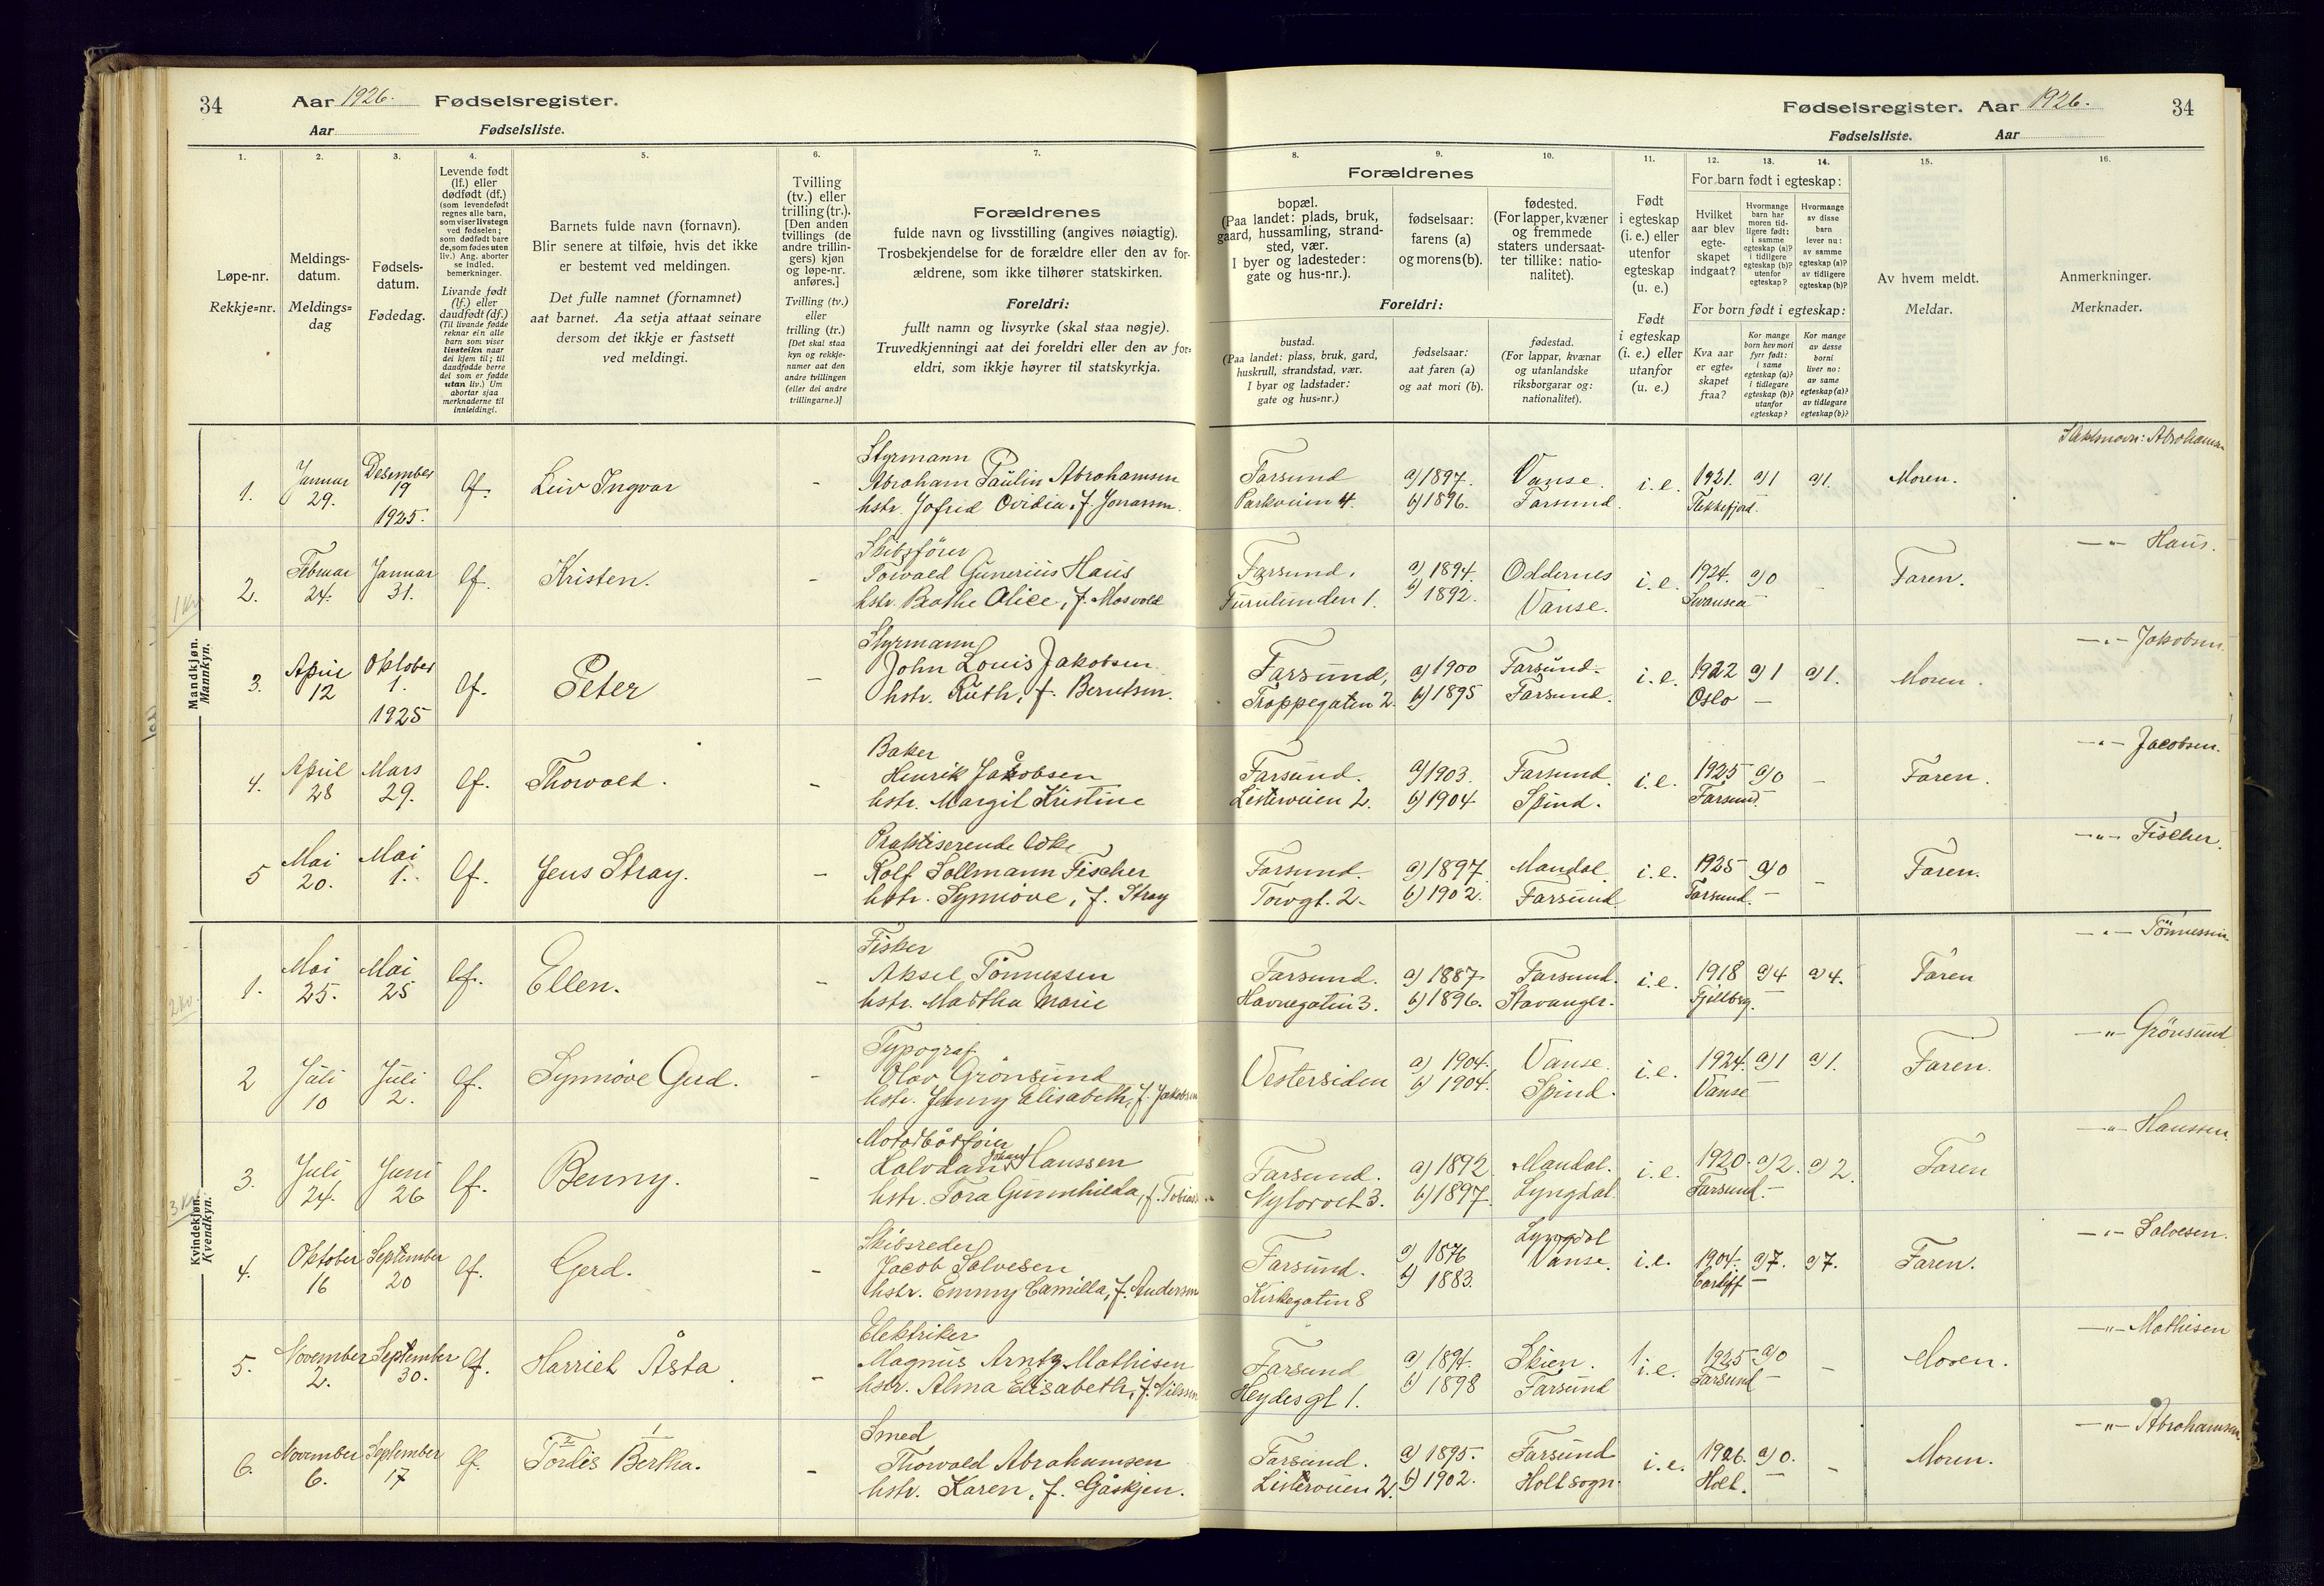 34
Aar 1926. Fødselsregister.
Aar Fødselsliste.
Fødselsregister. Aar 1926.
34
Fødselsliste. Aar
1. 2. 3. 4. 5. 6. 7. 8. 9. 10. 11. 12. 13. 14. 15. 16.
Løpe-nr.
Rekkje=nr.
Meldings-
datum.
Meldings=
dag
Fødsels-
datum.
Fødedag.
Levende født
(lf.) eller
dødfødt (df.)
(som levendefødt
regnes alle barn,
som viser livstegn
ved fødselen;
som dødfødt bare
de, som fødes uten
liv.) Ang. aborter
se indled.
bemerkninger.
Livande født
(lf.) eller
daudfødt (df.)
(Til livande fødde
reknar ein alle
barn som viser
livsteikn naar
dei kjem til; til
daudfødde berre
dei som er fødde
utan liv.) Um
abortar sjaa
merknaderne til
innleidingi.
Barnets fulde navn (fornavn).
Blir senere at tilføie, hvis det ikke
er bestemt ved meldingen.
Det fulle namnet (fornamnet)
aat barnet. Aa setja attaat seinare
dersom det ikkje er fastsett
ved meldingi.
Tvilling
(tv.) eller
trilling (tr.).
[Den anden
tvillings (de
andre trillin-
gers) kjøn
og løpe-nr.
anføres.]
Tvilling (tv.)
eller
trilling (tr.)
[Det skal staa
kyn og rekkje-
numer aat den
andre tvillingen
(eller dei andre
trillingarne.)]
Forældrenes
fulde navn og livsstilling (angives nøiagtig).
Trosbekjendelse for de forældre eller den av for-
ældrene, som ikke tilhører statskirken.
Foreldri:
fullt namn og livsyrke (skal staa nøgje).
Truvedkjenningi aat dei foreldri eller den av for-
eldri, som ikkje høyrer til statskyrkja.
Forældrenes
bopæl.
(Paa landet: plads, bruk,
gaard, hussamling, strand-
sted, vær.
I byer og ladesteder:
gate og hus-nr.).
fødselsaar:
farens (a)
og morens (b).
fødested.
(For lapper, kvæner
og fremmede
staters undersaat-
ter tillike: natio-
nalitet).
Foreldri:
bustad.
(Paa landet: plass, bruk, gard,
huskrull, strandstad, vær.
I byar og ladstader:
gate og hus=nr.)
fødselsaar:
aat faren (a)
og aat mori (b).
fødestad.
(For lappar, kvænar
og utanlandske
riksborgarar og:
nationalitet).
Født
i egteskap
(i. e.) eller
utenfor
egteskap
(u. e.)
Født
i egteskap
(i. e.) eller
utanfor
(u. e.)
For barn født i egteskap:
Hvilket
aar blev
egte-
skapet
indgaat?
Hvormange
barn har
moren tid-
ligere født:
i samme
egteskap (a)?
i tidligere
egteskap (b)?
utenfor
egteskap?
Hvormange
av disse
barn
lever nu:
av samme
egteskap (a)?
av tidligere
egteskap (b)?
For born født i egteskap:
Kva aar
er egte-
skapet
fraa?
Kor mange
born hev mori
fyrr født:
i same
egteskap (a)?
i tidlegare
egteskap (b)?
utanfor
egteskap?
Kor mange
av desse
borni
liver no:
av same
egteskap (a)?
av tidlegare
egteskap (b)?
Av hvem meldt.
Meldar.
Anmerkninger.
Merknader.
Mandkjøn.
Mannkyn.
1. Januar 29. Desember 19 1925. lf. Leiv Ingvar -
Styrmann
Abraham Paulin Abrahamsen
hstr. Jofrid Ovidia, f. Jonassen.
Farsund Parkveien 4. a) 1897. b) 1896. Vanse. Farsund. i. e. 1921. Flekkefjord. a) 1 a) 1. Moren. Slektsnavn: Abrahamsen
2. Februar 24. Januar 31. lf. Kristen. -
Skibsfører
Torvald Gunerius Haus
hstr. Brathe Alice, f. Mosvold
Farsund. Furulunden 1. a) 1894. b) 1892. Oddernes Vanse. i. e. 1924. Swansea a) 0 - Faren. —"— Haus.
3. April 12 Oktober 1. 1925 lf. Peter -
Styrmann
John Louis Jakobsen
hstr. Ruth, f. Berntsen.
Farsund, Trappegaten 2. a) 1900 b) 1895 Farsund. Farsund. i. e. 1922 Oslo a) 1 a) 1. Moren. —"— Jakobsen.
4. April 28 Mars 29. lf. Thorvald. -
Baker
Henrik Jacobsen
hstr. Margit Kristine
Farsund. Listerveien 2. a) 1903. b) 1904 Farsund Spind. i. e. 1925 Farsund. a) 0 - Faren. —"— Jacobsen.
5 Mai 20. Mai 1. lf. Jens Stray. -
Praktiserende læke
Rolf Sollmann Fischer
hstr. Synnøve, f. Stray
Farsund. Torvgt. 2. a) 1897. b) 1902. Mandal. Farsund. i. e. 1925 Farsund. a) 0 - Faren. —"— Fischer.
Kvindekjøn.
Kvendkyn.
1. Mai 25. Mai 25 lf. Ellen. -
Fisker
Aksel Tønnessen
hstr. Martha Marie
Farsund. Havnegaten 3. a) 1887 b) 1896. Farsund. Stavanger. i. e. 1918 Fjellberg. a) 4 a) 4. Faren —"— Tønnessen
2 Juli 10 Juli 2. lf. Synnøve Gerd. -
Typograf
Olav Grønsund
hstr. Jenny Elisabeth, f. Jakobsen
Vestersiden a) 1904. b) 1904. Vanse. Spind. i. e. 1924. Vanse a) 1 a) 1. Faren. —"— Grönsund
3. Juli 24. Juni 26 lf. Benny. -
Motorbåtfører
Halvdan Johan Hanssen
hstr. Tora Gunnhilda, f. Tobias
Farsund. Nytorvet 3. a) 1892. b) 1897. Mandal. Lyngdal. i. e. 1920. Farsund. a) 2. a) 2. Faren —"— Hanssen.
4. Oktober 16 September 20 lf. Gerd. -
Skibsreder
Jacob Salvesen
hstr. Emmy Camilla, f. Andersen
Farsund. Kirkegaten 8 a) 1876 b) 1883. Lyngdal Vanse. i. e. 1904. Cardiff a) 7. a) 7. Faren. —"— Salvesen.
5. November 2. September 30. lf. Harriet Åsta. -
Elektriker
Magnus Arntz Mathisen
hstr. Alma Elisabeth, f. Nilssen
Farsund Heydesgt 1. a) 1894. b) 1898 Skien. Farsund i. e. 1925 Farsund a) 0 - Moren. —"— Mathisen
6. November 6. September 17 lf. Tordis Bertha. -
Smed
Thorvald Abrahamsen
hstr. Karen, f. Gåskjen.
Farsund. Listerveien 2. a) 1895. b) 1902. Farsund Holt sogn. i. e. 1926. Holt. a) 0. - Moren. —"— Abrahamsen